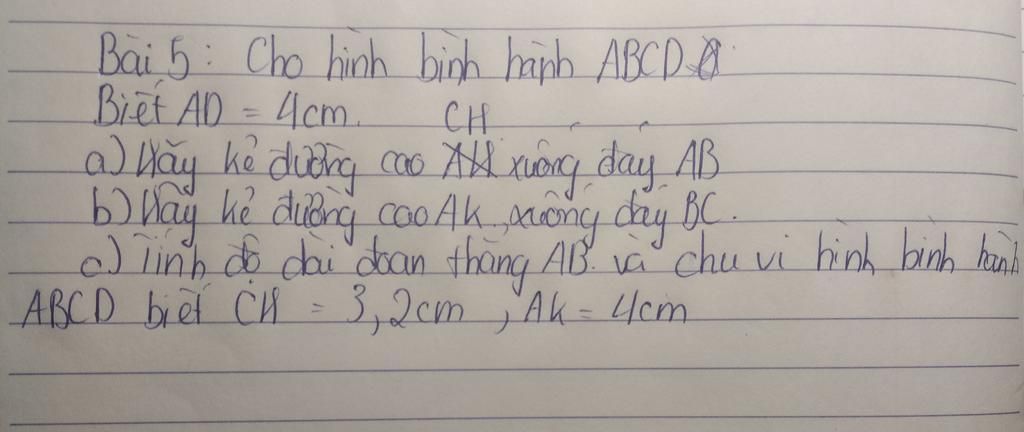 Bài 5: Cho hình bình hành ABCD.
Biết AD = 4cm. CH
a) Hãy kẻ đường cao AH xuống đáy AB
b) Hãy kẻ đường cao AK, xuống đáy BC.
c) Tính độ dài đoạn thẳng AB. và chu vi hình bình hành
ABCD biết CH = 3,2cm, AK = 4cm